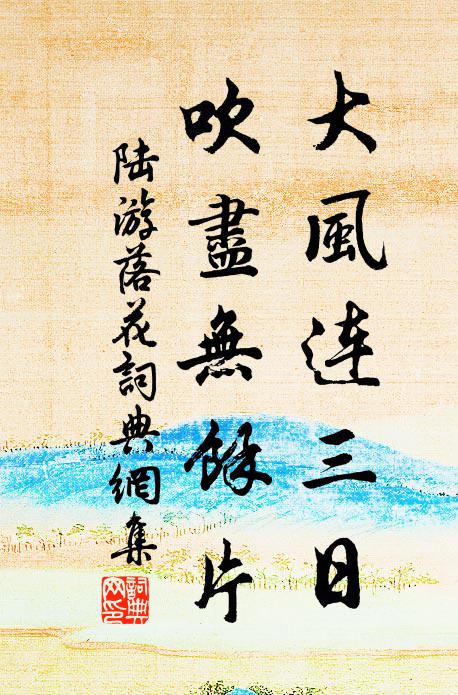 大風连三日
吹盡無餘片
陆游落花詞典網集
詞典